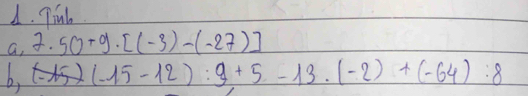 1. Tính
a, 7.50+9.[(-3)-(-27)]
b, (-15-12):9+5-13.(-2)+(-64):8